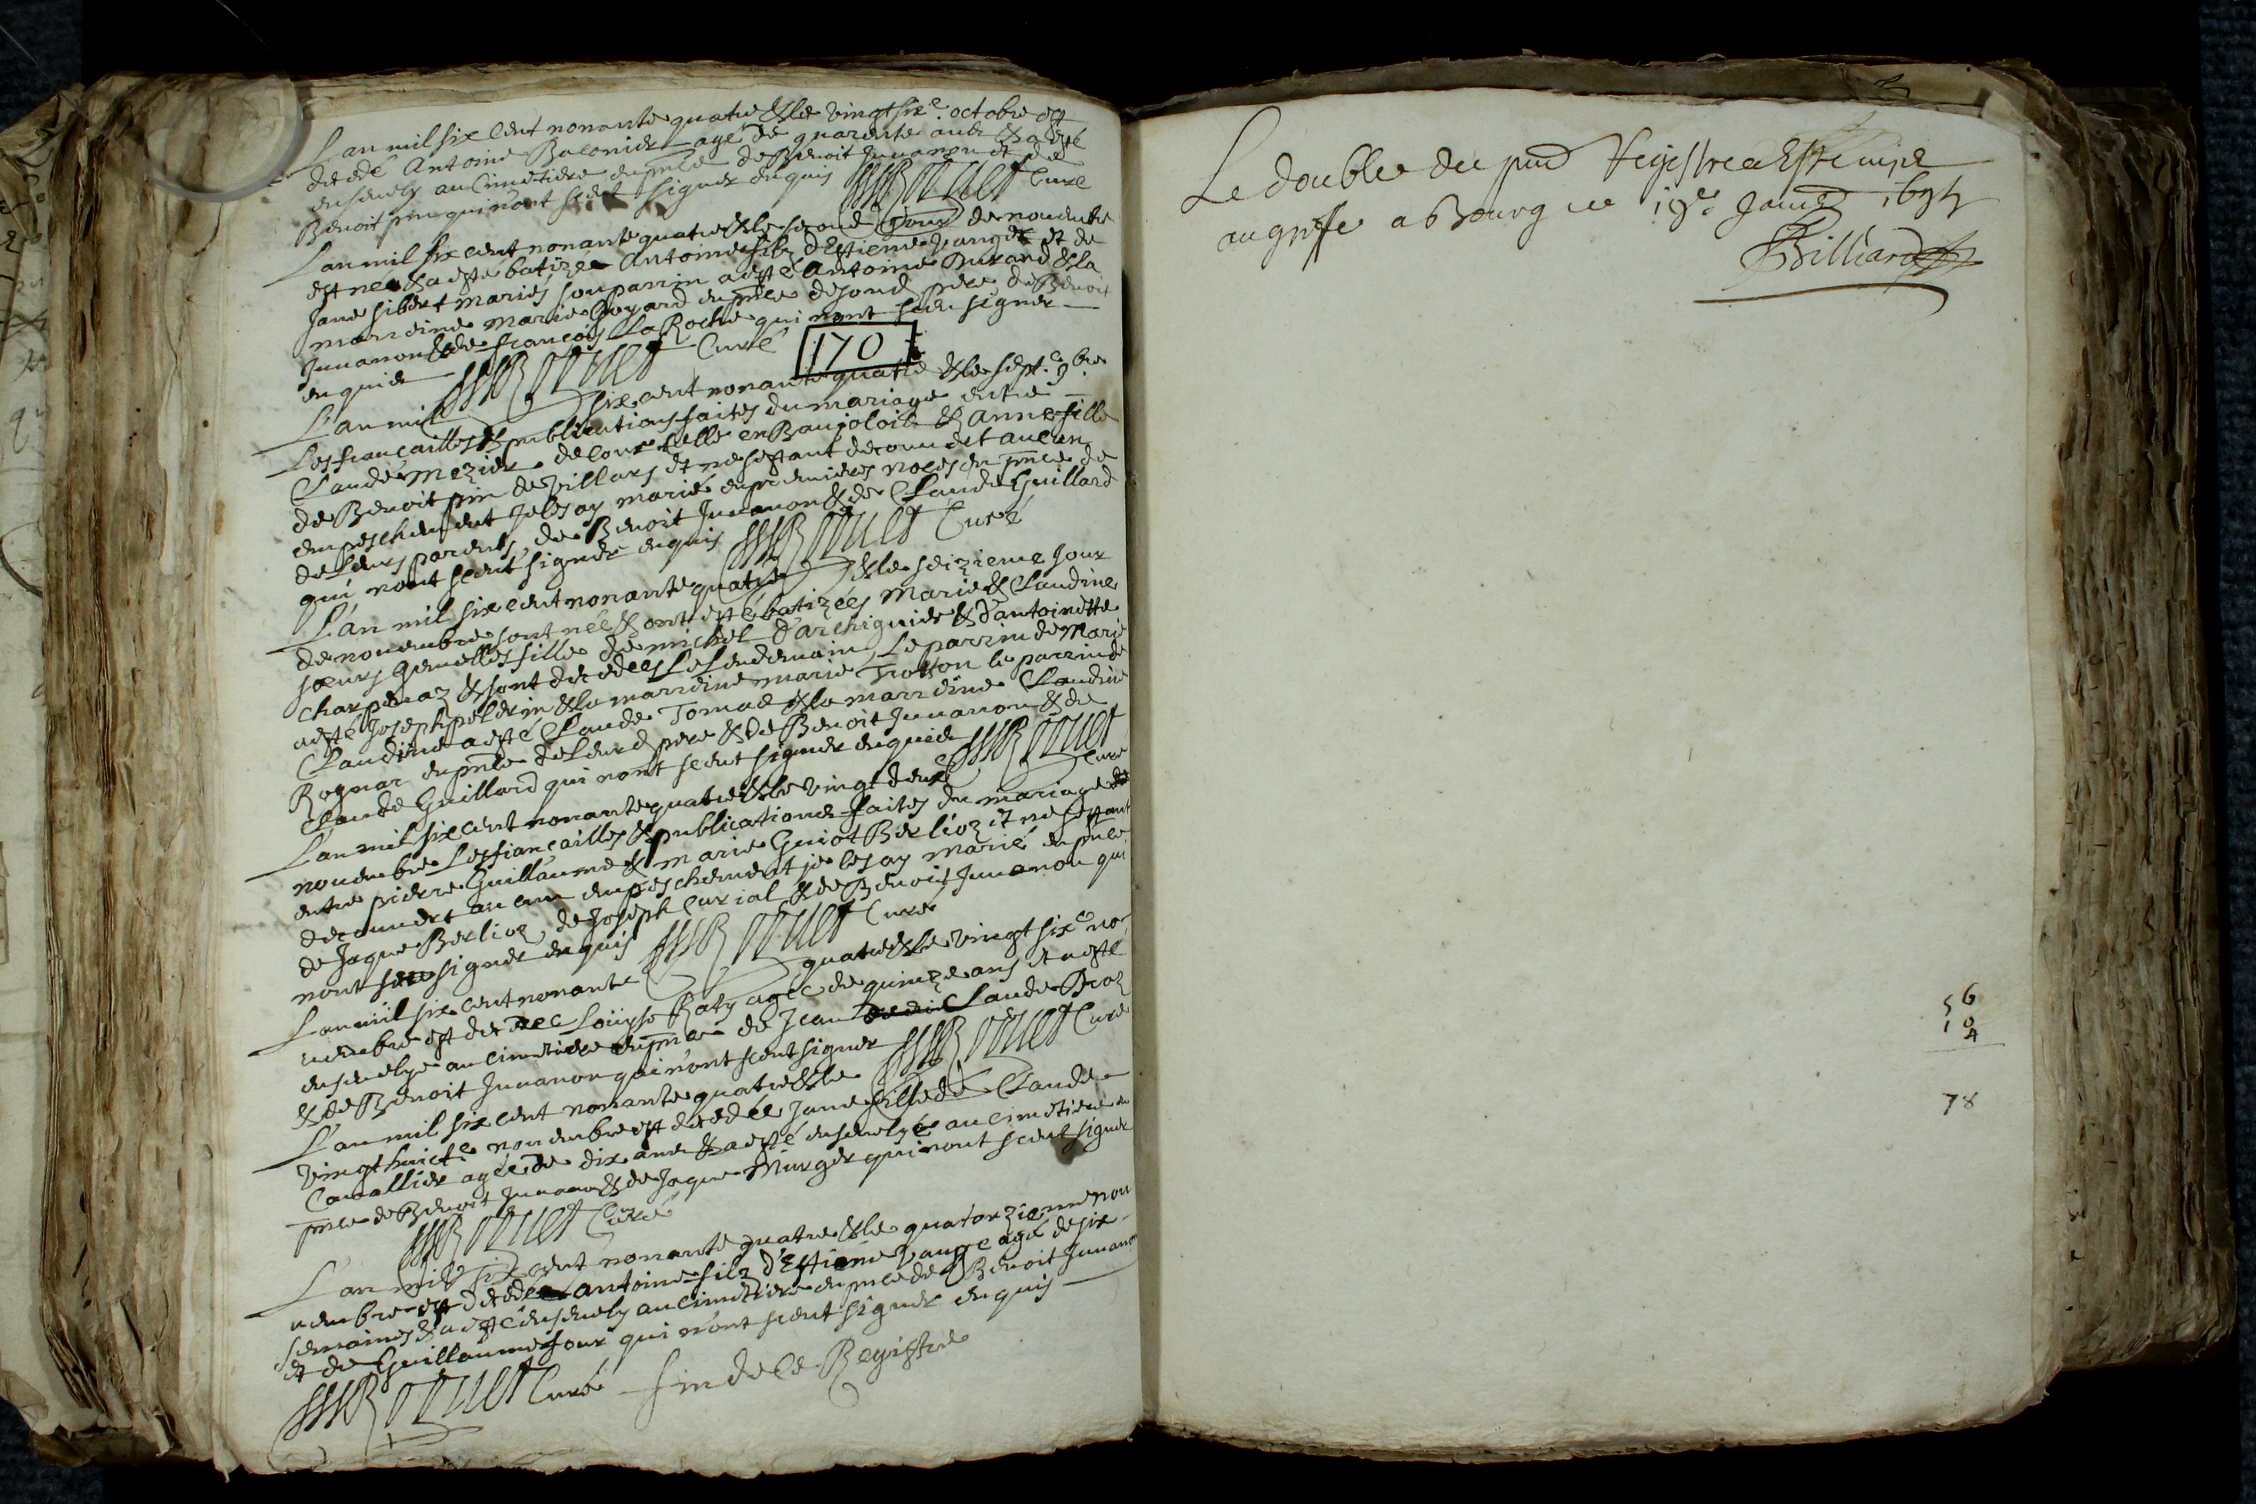 L'an mil six cent nonante quatre & le vingt six.e octobre est
decedé Antoine Baconier agé de quarente ans & a esté
ensevely au Cimetiere en pnce de Benoit Juvanon et de
Benoit pin qui n'ont sceut signer enquis Curé
L'an mil six cent nonante quatre & le second jour de novembre
est né & a esté batizé Antoine filz d'Estiene Vanget et de
Jane Sibert mariés son parrin a esté Antoine Durand & la
marreine Marie Goyard en pnce de son d pere de Benoit
Juvanon & de françois LaRoche qui n'ont sceu signer
enquis Curé
170
L'an mil six cent nonante quatre & le sept.e 9.bre
Les fiancailles & publications faites du mariage entre
Claude Mezier de Courcelle en Baujolois & Anne fille
de Benoit pin de Villars et ne s'estant decouvert aucun
empeschement Je les ay marié en premieres noces en pnce de
de Leurs parents, de Benoit Juvanon & de Claude Guillard
qui n'ont sceut signer enquis Curé
L'an mil six cent nonante quatre & le seizieme jour
de novembre sont née & ont esté batizées Marie & Claudine
sœurs gemelles fille de michel d'archiguier & d'antoinette
Charpenaz & sont decedées Le Lendemain, Le parrin de Marie
a esté Joseph pelerin & la marreine marie Trotton le parrin de
Claudine a esté Claude Tomas & la marreine Claudine
Rognar en pnce de Leur d pere & de Benoit Juvanon & de
Claude Guillard qui n'ont sceut signer enquis
Curé
L'an mil six cent nonante quatre & le vingt deux
novembre Les fiancailles & publications faites du mariage
entre pierre Guillaume & marie Guiot Berlioz et ne s'estant
decouvert aucun empeschement je les ay marié en pnce
de Jaque Berlioz, de Joseph Curial & de Benoit Juvanon qui
n'ont sceu signer enquis Curé
L'an mil six cent nonante quatre & le vingt six.e no
vembre est decedée Loüyse Raty agée de quinze ans et a esté
ensevelye au cimetiere en pnce de Jean Claude Broz
& de Benoit Juvanon qui n'ont sceut signer Curé
L'an mil six cent nonante quatre & le
vingt huict.e novembre est decedée Jane fille de Claude
Cavallier agée de dix ans & a esté ensevelye au cimetiere en
pnce de Benoit Juvanon & de Jaque Murger qui n'ont sceut signer
Curé
L'an mil six cent nonante quatre & le quatorzieme nou
vembre est decedé antoine filz d'Estiene Vange agé de six
semaines & a esté ensevely au cimetiere en pnce de Benoit Juvanon
et de Guillaume four qui n'ont sceut signer enquis
Curé fin de Ce Registre
Le double du pnd Registre a Esté mis
au greffe a Bourg ce 19.e Janv. 1695
Billiard
56
10
4
78